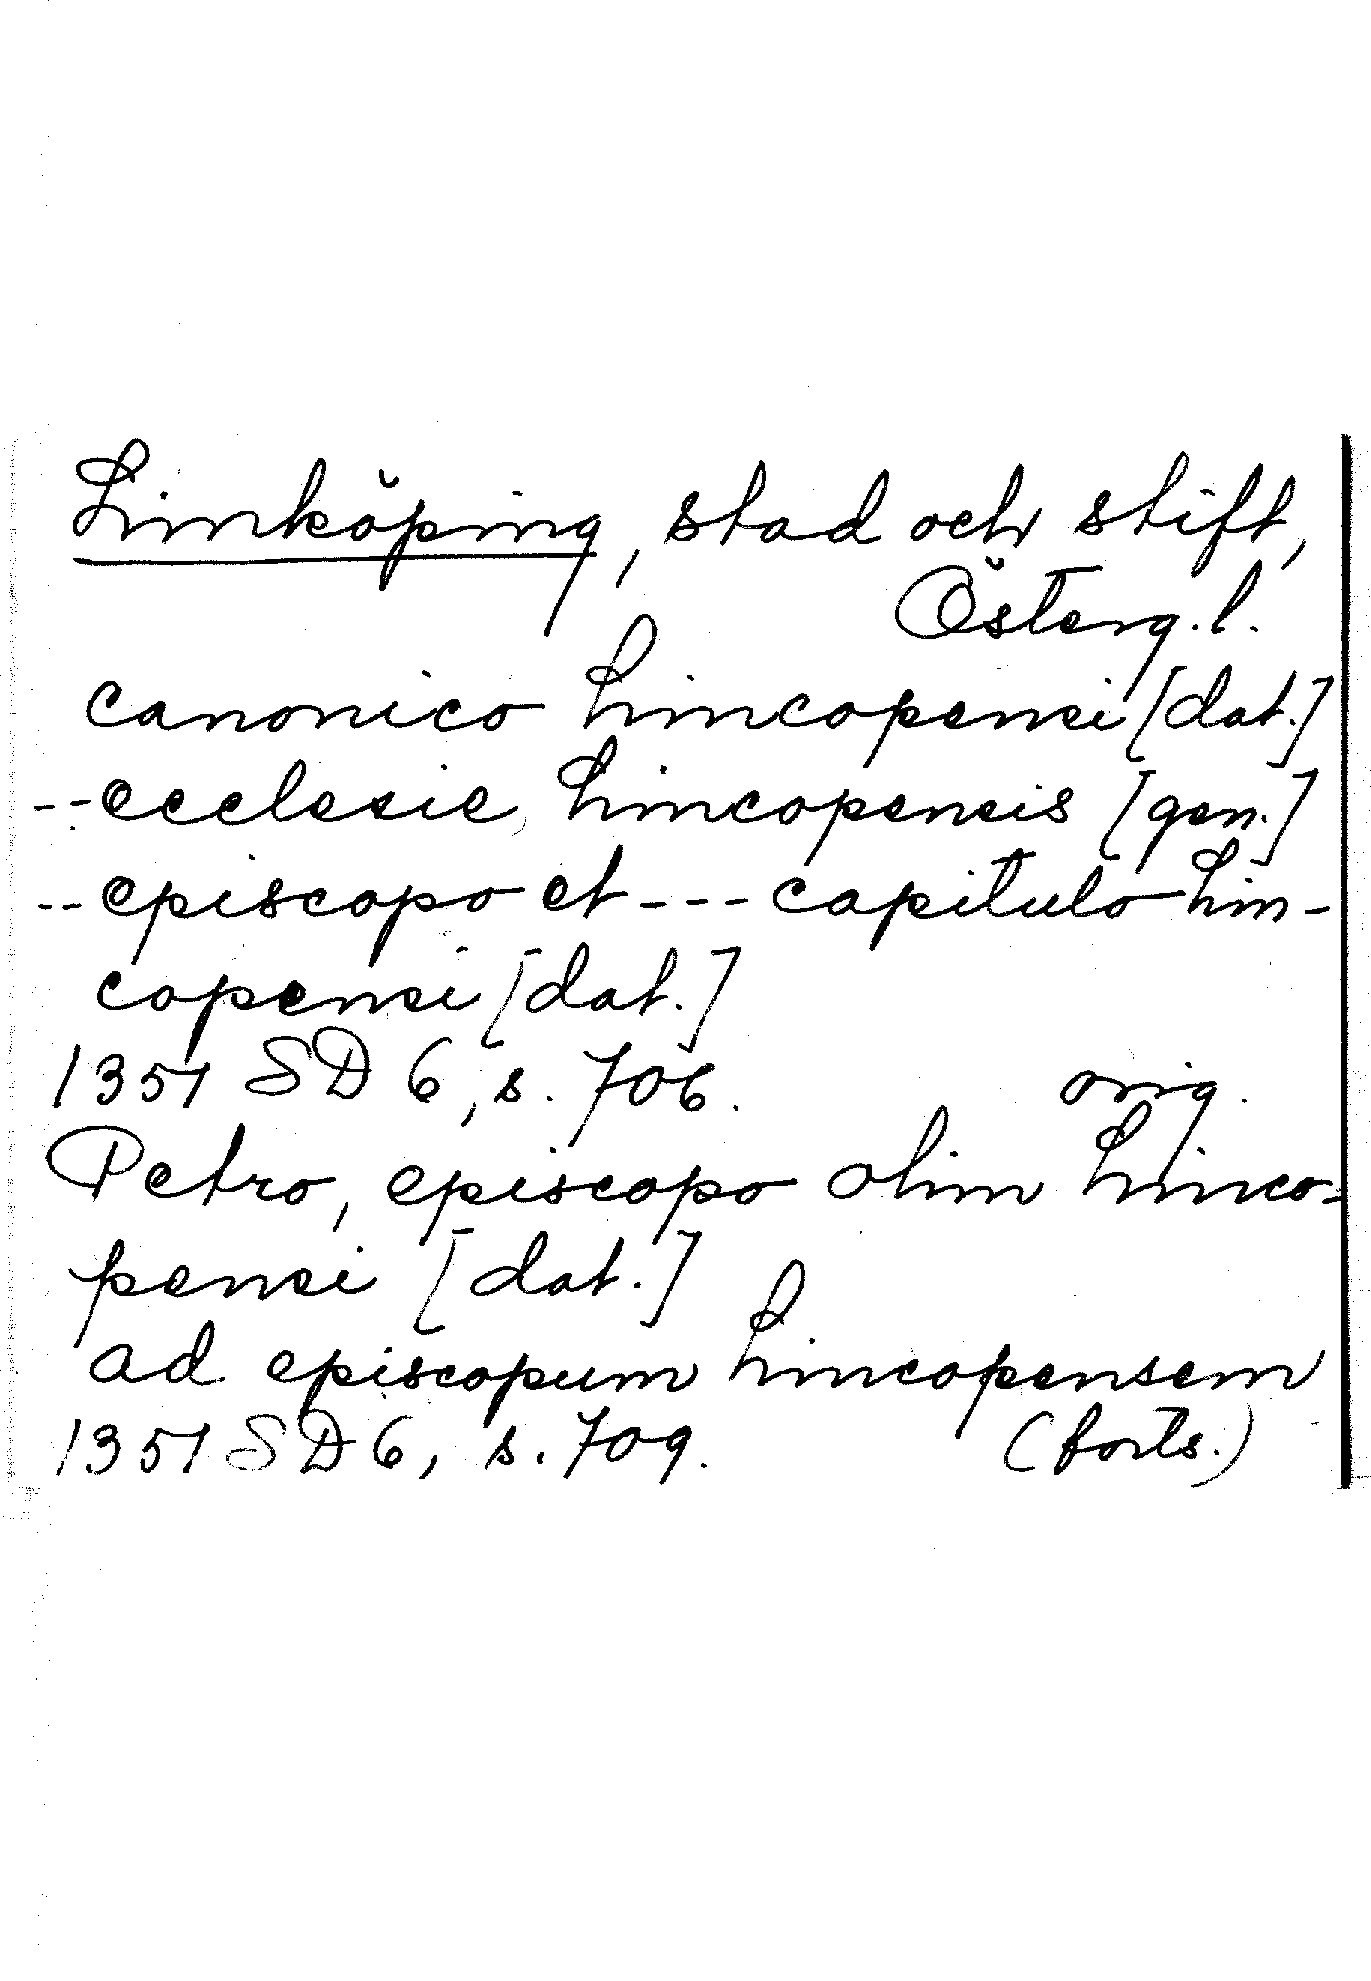 Linköping, stad och stift,
Österg.l.
canonico Lincopensi [dat.]
--ecclesie Lincopensis [gen.]
--episcopo et --- capitulo Lin-
copensi [dat.]
1351 SD 6, s. 706. orig.
Petro, episcopo olim Linco-
pensi [dat.]
ad episcopum Lincopensem
1351 SD 6, s. 709. (forts.)